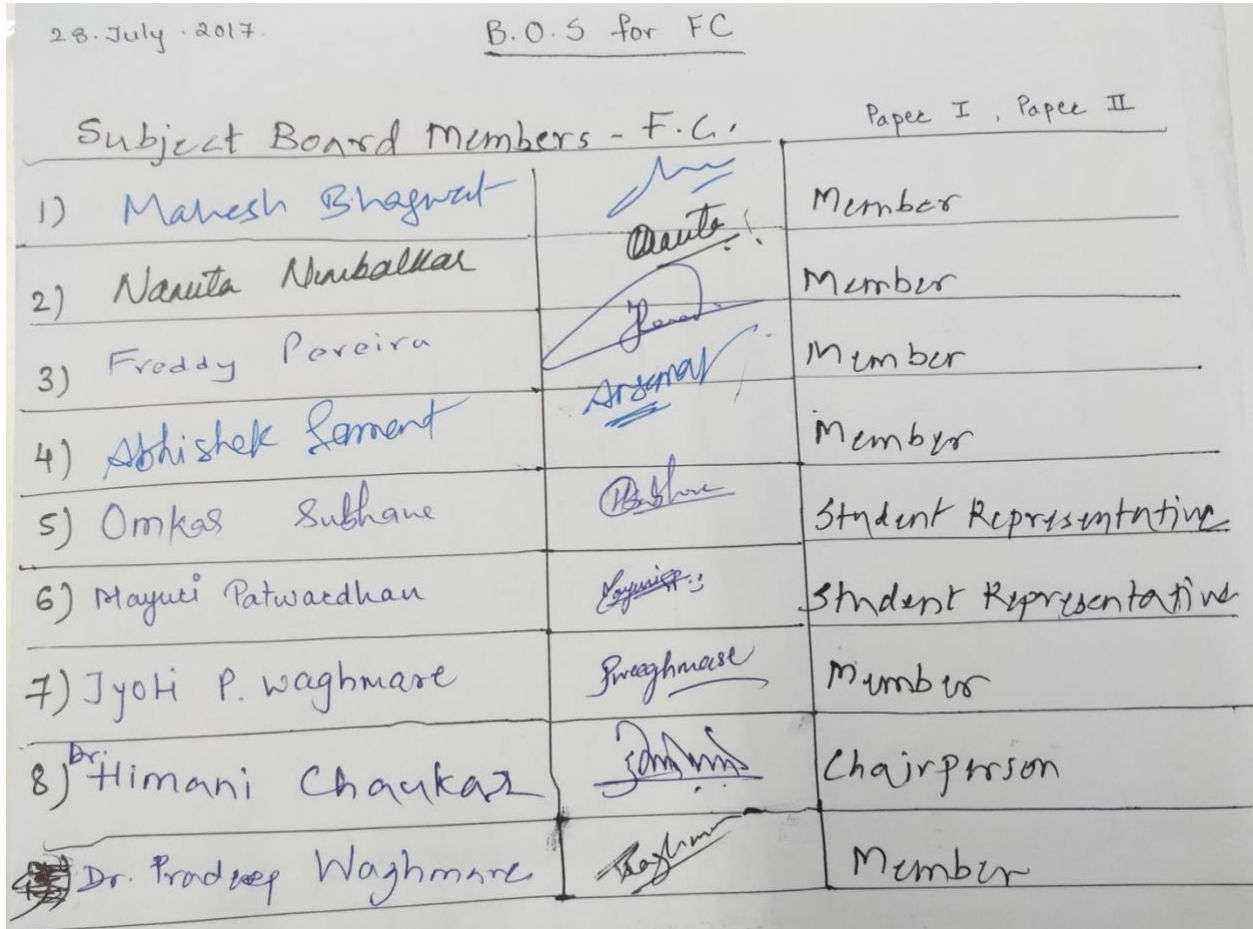 28. July . 2017. B.O.S for FC
Subject Board Members - F.C. Paper I , Paper II
1) Mahesh Bhagwat Member
2) Namita Nimbalkar Member
3) Freddy Pereira Member
4) Abhishek Samant Member
5) Omkar Subhane Student Representative
6) Mayuri Patwardhan Student Representative
7) Jyoti P. Waghmare Pwaghmare Member
8) Dr. Himani Chaukar Chairperson
Dr. Pradeep Waghmare Member